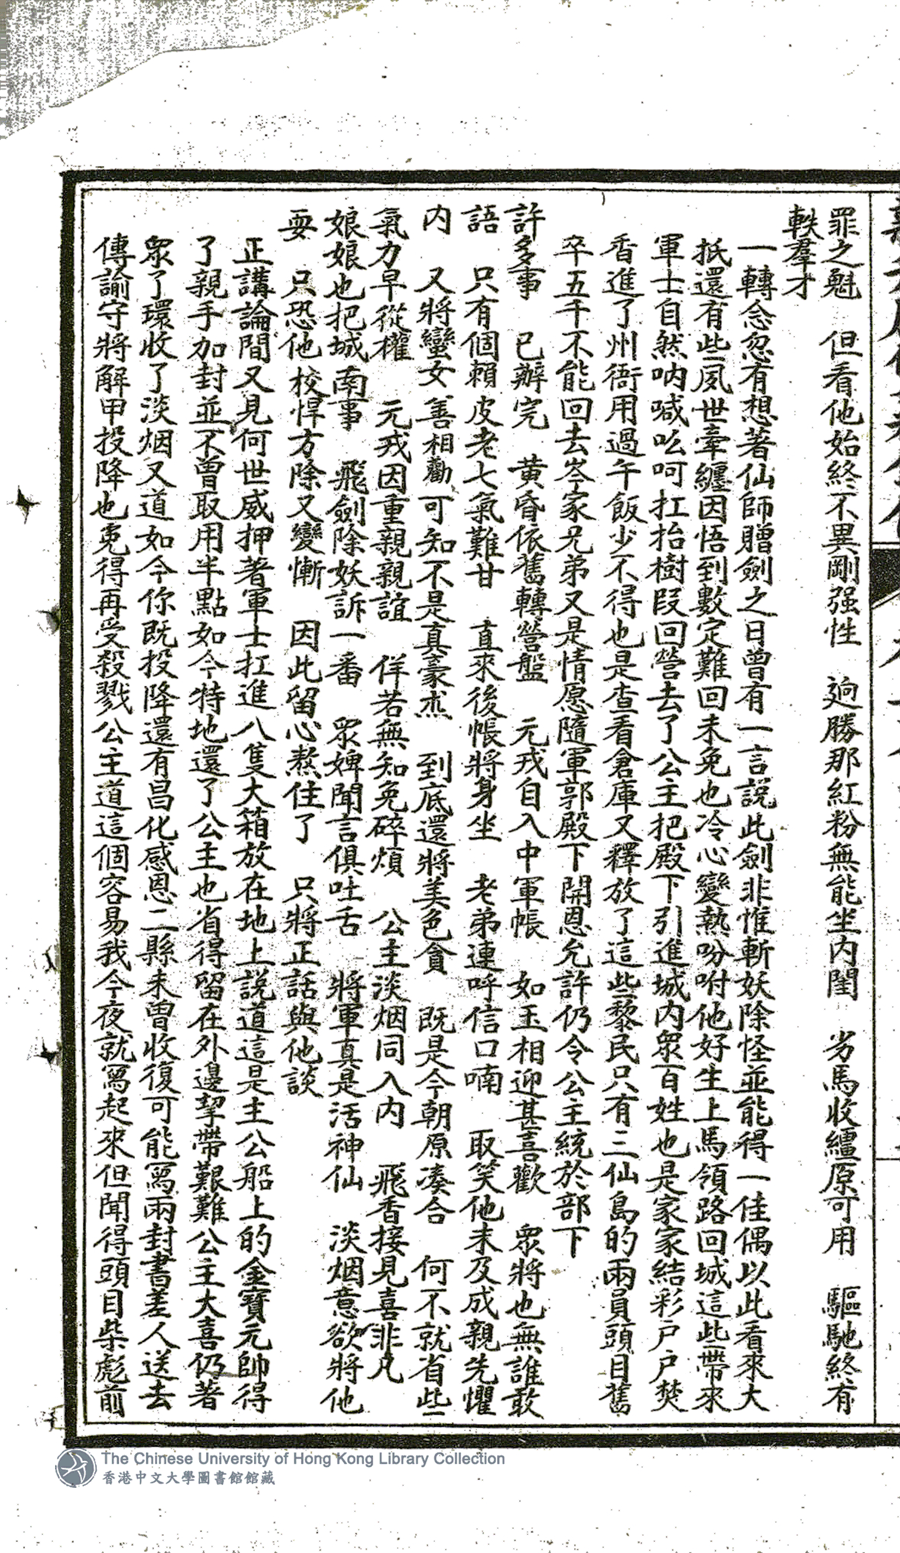 罪之魁　但看他始終不異剛强性　迥勝那紅粉無能坐内閨　劣馬收繮原可用　驅馳終有
軼羣才
一轉念忽有想著仙師贈劍之日曾有一言說此劍非惟斬妖除怪並能得一佳偶以此看來大
抵還有些夙世牽纏因悟到數定難回未免也冷心變熱吩咐他好生上馬領路回城這些帶來
軍士自然吶喊吆呵扛抬樹段回營去了公主把殿下引進城内眾百姓也是家家結彩戶戶焚
香進了州衙用過午飯少不得也是查看倉庫又釋放了這些黎民只有三仙島的兩員頭目舊
卒五千不能回去岑家兄弟又是情愿隨軍郭殿下開恩允許仍令公主統於部下
許多事　已辦完　黃昏依舊轉營盤　元戎自入中軍帳　如玉相迎甚喜歡　眾將也無誰敢
語　只有個賴皮老七氣難甘　直來後帳將身坐　老弟連呼信口喃　取笑他未及成親先懼
内　又將蠻女善相勸可知不是真豪杰　到底還將美色貪　既是今朝原凑合　何不就省些
氣力早從權　元戎因重親親誼　佯若無知免碎煩　公主淡烟同入内　飛香接見喜非凡
娘娘也把城南事　飛劍除妖訴一番　眾婢聞言俱吐舌　將軍真是活神仙　淡烟意欲將他
耍　只恐他校悍方除又變慚　因此留心熬住了　只將正話與他談
正講論間又見何世威押著軍士扛進八隻大箱放在地上說道這是主公船上的金寶元帥得
了親手加封並不曾取用半點如今特地還了公主也省得留在外邊挈帶艱難公主大喜仍著
眾了環收了淡烟又道如今你既投降還有昌化感恩二縣未曾收復可能寫兩封書差人送去
傳諭守將解甲投降也免得再受殺戮公主道這個容易我今夜就寫起來但聞得頭目柴彪前
The Chinese University of Hong Kong Library Collection
香港中文大學圖書館館藏